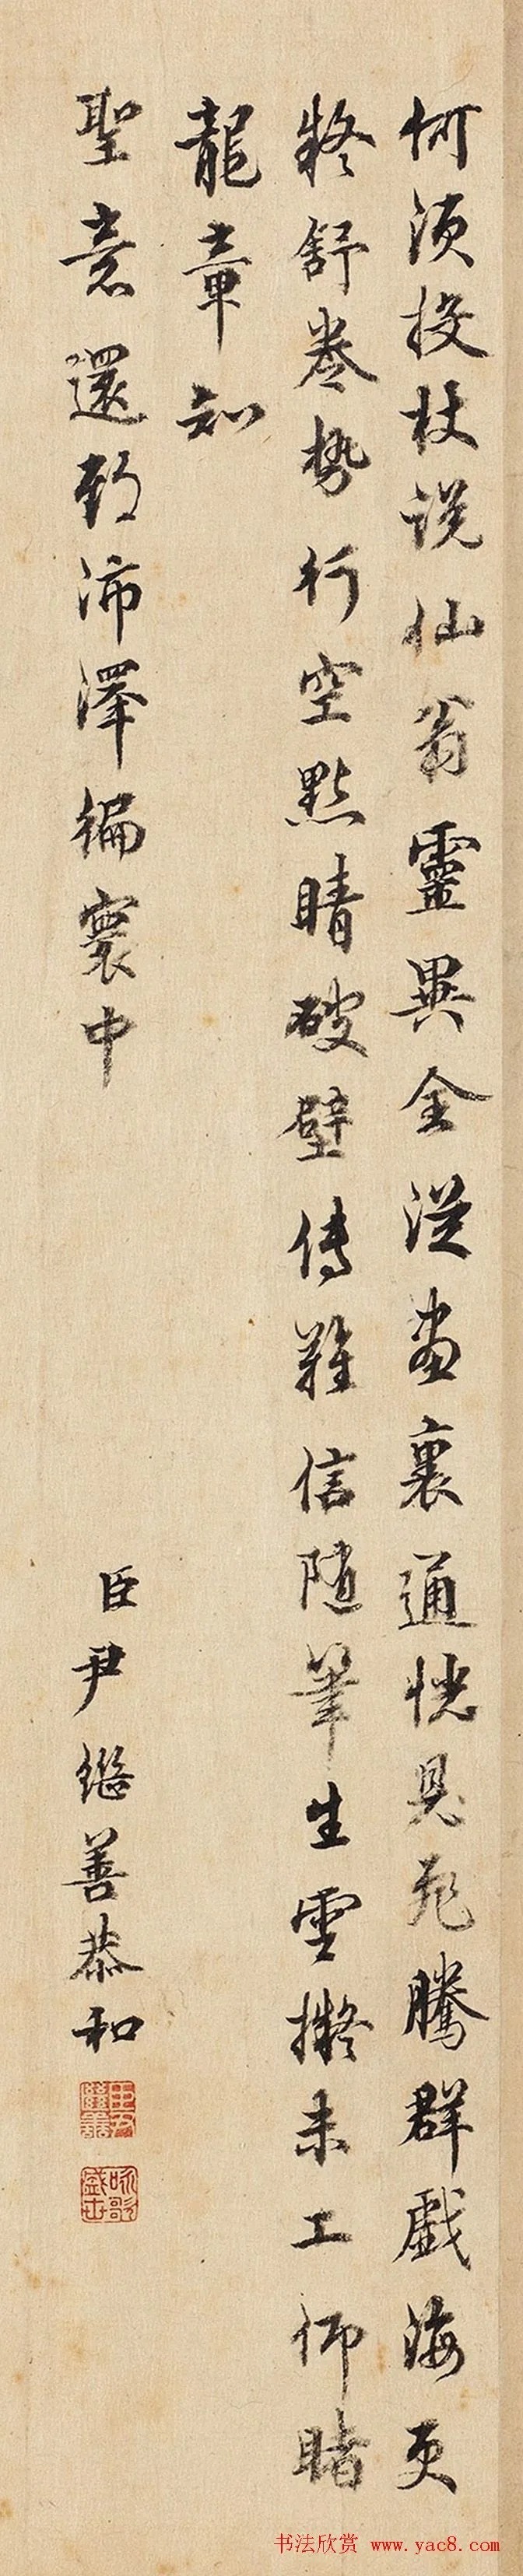 何須投杖說仙翁靈異全從畫裏通恍見飛騰群戲海更
疑舒卷勢行空點睛破壁傳難信隨筆生雲擬未工仰睹
龍章知
聖意還敷沛澤徧寰中
臣尹繼善恭和
臣尹繼善
书法欣赏 www.yac8.com